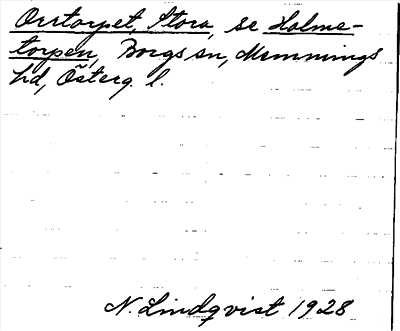 Orrtorpet, Stora, se Holma-
torpen, Borgs sn, Memmings
hd, Österg. l.
N. Lindqvist 1928